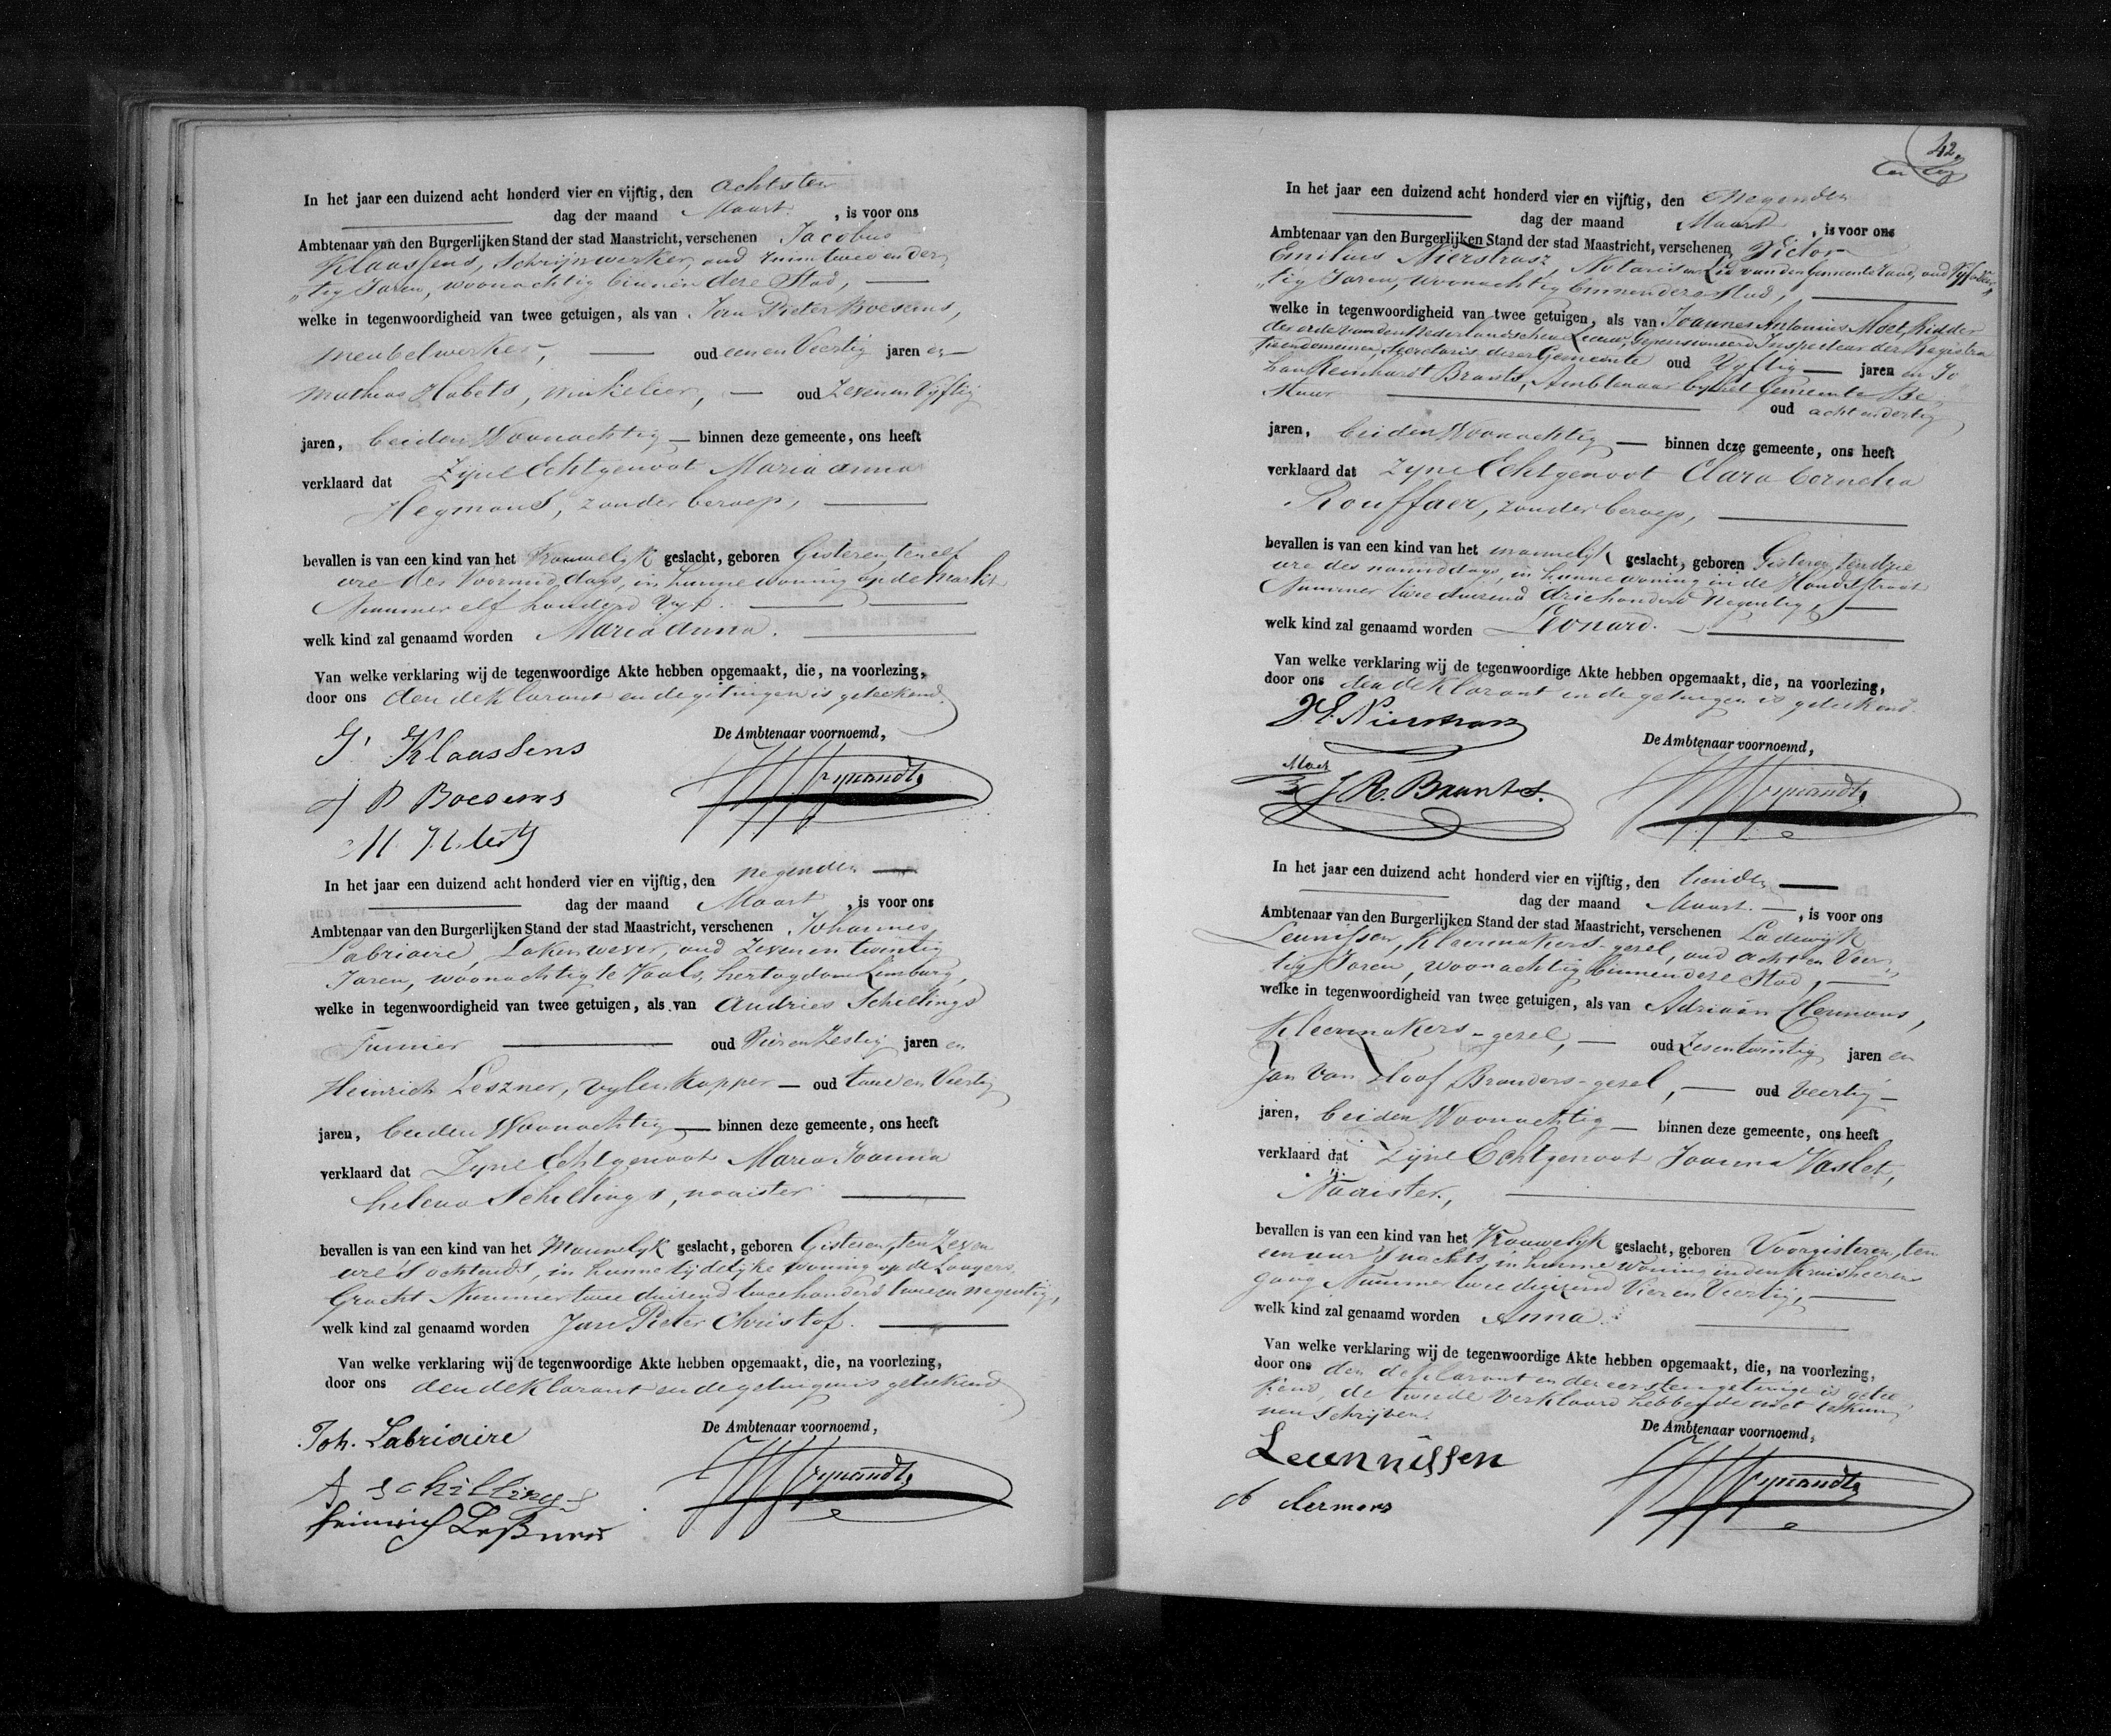 In het jaar een duizend acht honderd vier en vijftig, den achtsten
dag der maand Maart , is voor ons
Ambtenaar van den Burgerlijken Stand der stad Maastricht, verschenen Jacobus
Klaassens, Schrijnwerker, oud ruim twee en der„
„tig Jaren, woonachtig binnen deze Stad,
welke in tegenwoordigheid van twee getuigen, als van Jan Pieter Boesens,
meubelwerker, oud een en Veertig jaren en
Mathias Habets, winkelier, oud Zeven en Vyftig
jaren, beiden Woonachtig binnen deze gemeente, ons heeft
verklaard dat Zyne Echtgenoot Maria Anna
Heymans, zonder beroep,
bevallen is van een kind van het Vrouwelyk geslacht, geboren Gisteren, ten elf
ure des Voormiddags, in hunne woning op de Markt
Nummer elf honderd Vyf.
welk kind zal genaamd worden Maria Anna.
Van welke verklaring wij de tegenwoordige Akte hebben opgemaakt, die, na voorlezing,
door ons den deklarant en de getuigen is geteekend.
De Ambtenaar voornoemd,
J. Klaassens
J P Boesens
M. Habets
In het jaar een duizend acht honderd vier en vijftig, den negenden
dag der maand Maart , is voor ons
Ambtenaar van den Burgerlijken Stand der stad Maastricht, verschenen Johannes
Labriaire, Lakenwever, oud Zeven en twentig
Jaren, woonachtig te Vaals, hertogdom Limburg,
welke in tegenwoordigheid van twee getuigen, als van Andries Schillings
oud Vier en Zestig jaren en
Heinrich Leszner, Vylenkapper oud twee en Veertig
jaren, beiden Woonachtig binnen deze gemeente, ons heeft
verklaard dat Zyne Echtgenoot Maria Joanna
helena Schillings, naaister
bevallen is van een kind van het Mannelyk geslacht, geboren Gisteren, ten Zeven
ure 's ochtends, in hunne tijdelyke woning op de Looyers
Gracht Nummer twee duizend twee honderd twee en negentig,
welk kind zal genaamd worden Jan Pieter Christof.
Van welke verklaring wij de tegenwoordige Akte hebben opgemaakt, die, na voorlezing,
door ons den deklarant en de getuigen is geteekend
De Ambtenaar voornoemd,
Joh. Labriaire
A schillings
Heinrich Leßner
42.
In het jaar een duizend acht honderd vier en vijftig, den Negenden
dag der maand Maart , is voor ons
Ambtenaar van den Burgerlijken Stand der stad Maastricht, verschenen Victor
Emilius Nierstrasz, Notaris en Lid van den Gemeente Raad, oud Vyf en der„
„tig Jaren, woonachtig binnen deze Stad,
welke in tegenwoordigheid van twee getuigen, als van Joannes Antonius Moet, Ridder
der orde van den Nederlandschen Leeuw, Gepensioneerd Inspecteur der Registra
tie en domeinen, Secretaris dezer Gemeente oud Vyftig jaren en Jo
han Reinhardt Brants, Ambtenaar by het Gemeente Be„
stuur oud acht en dertig
jaren, beiden Woonachtig binnen deze gemeente, ons heeft
verklaard dat Zyne Echtgenoot Clara Cornelia
Rouffaer, zonder beroep,
bevallen is van een kind van het mannelijk geslacht, geboren Gisteren, ten drie
ure des namiddags, in hunne woning in de
Nummer twee duizend driehonderd Negentig,
welk kind zal genaamd worden Leonard.
Van welke verklaring wij de tegenwoordige Akte hebben opgemaakt, die, na voorlezing,
door ons den deklarant en de getuigen is geteekend.
V.E. Nierstrasz
De Ambtenaar voornoemd,
Moet
J R. Brants.
In het jaar een duizend acht honderd vier en vijftig, den tienden
dag der maand Maart. , is voor ons
Ambtenaar van den Burgerlijken Stand der stad Maastricht, verschenen Lodewijk
Leunissen, Kleermakers-gezel, oud acht en Veer„
tig Jaren, woonachtig binnen deze Stad,
welke in tegenwoordigheid van twee getuigen, als van Adriaan Clermons,
Kleermakers-gezel, oud Zes en twintig jaren en
Jan Van Hoof, Branders-gezel, oud Veertig
jaren, beiden Woonachtig binnen deze gemeente, ons heeft
verklaard dat Zijne Echtgenoot Joanna Vaslet,
Naaister,
bevallen is van een kind van het Vrouwelyk geslacht, geboren Voorgisteren, ten
een uur 's nachts, in hunne Woning in den Kruisheeren
gang Nummer twee duizend Vier en Veertig,
welk kind zal genaamd worden Anna.
Van welke verklaring wij de tegenwoordige Akte hebben opgemaakt, die, na voorlezing,
door ons den deklarant en den eersten getuige is getee
kend, de tweede verklaard hebbende niet te kun
nen schrijven.
De Ambtenaar voornoemd,
Leunnissen
clermons